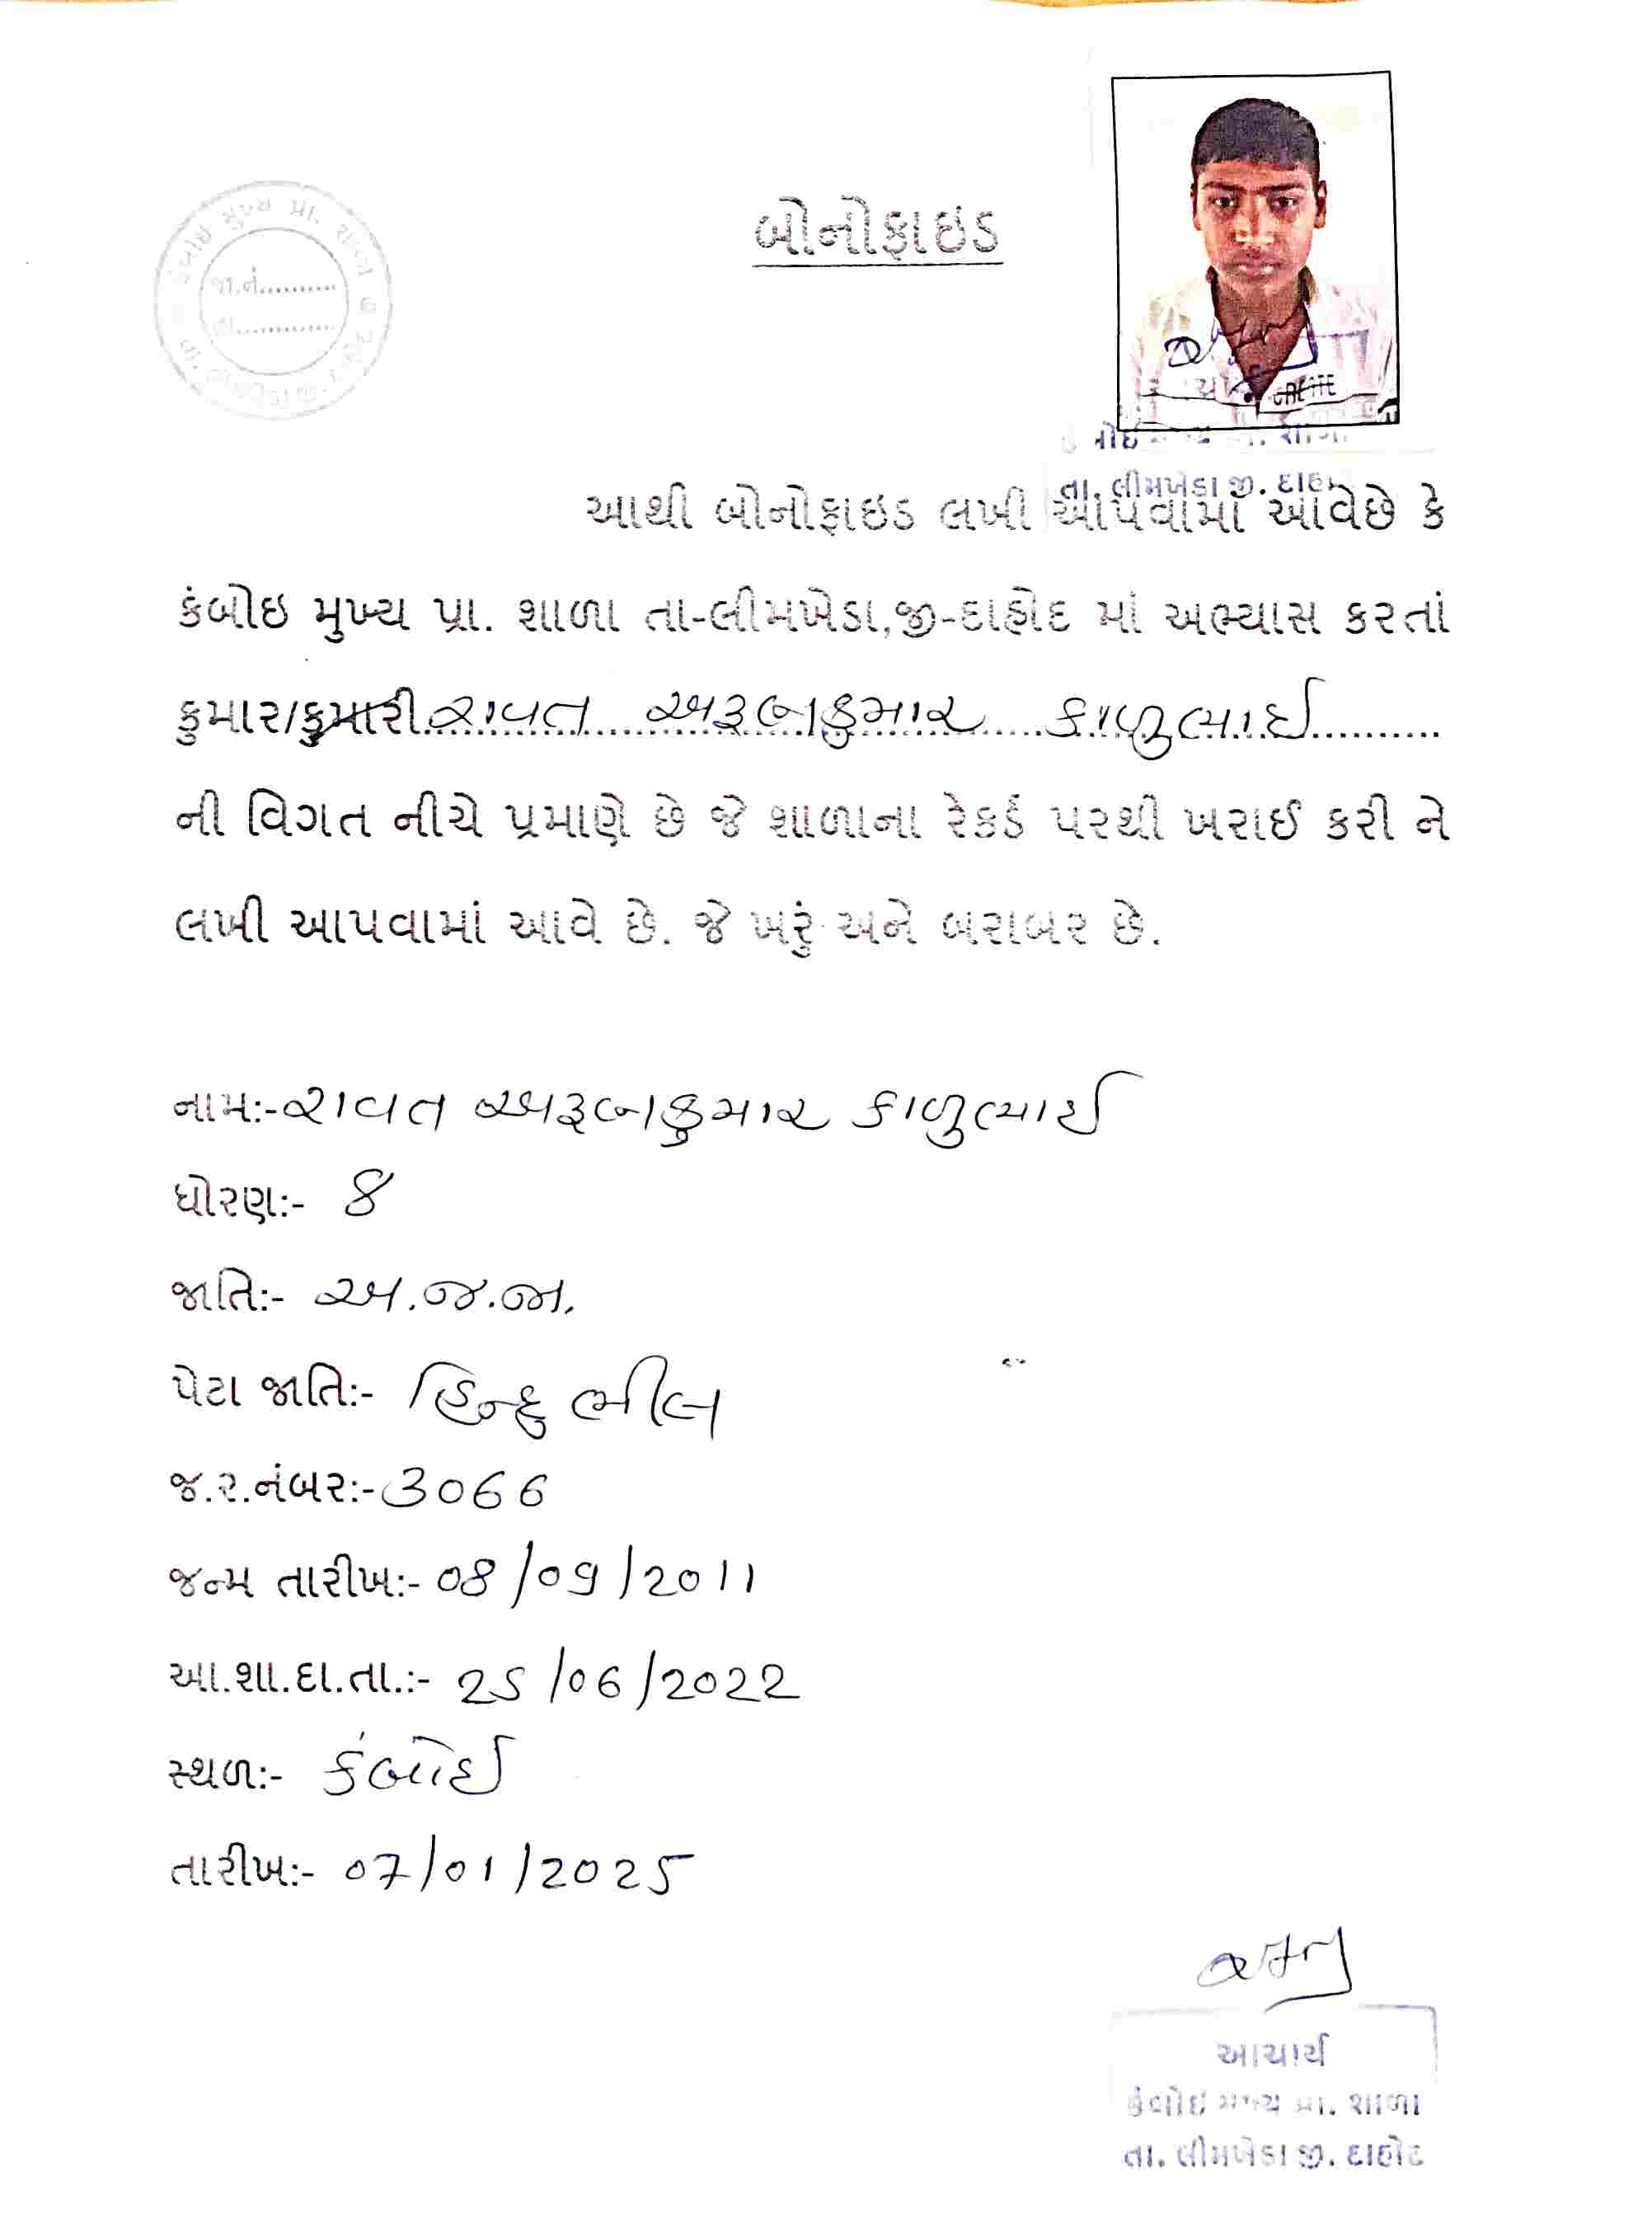 બોનોફાઇડ
કંબોઇ મુખ્ય પ્રા. શાળા
જા.નં..........
તા. લીમખેડા જી. દાહોદ
આથી બોનોફાઇડ લખી આપવામાં આવેછે કે
કંબોઇ મુખ્ય પ્રા. શાળા તા-લીમખેડા,જી-દાહોદ માં અભ્યાસ કરતાં
કુમાર/કુમારી રાવત અરૂણકુમાર કાળુભાઈ
ની વિગત નીચે પ્રમાણે છે જે શાળાના રેકર્ડ પરથી ખરાઈ કરી ને
લખી આપવામાં આવે છે. જે ખરું અને બરાબર છે.
નામ:- રાવત અરૂણકુમાર કાળુભાઈ
ધોરણ:- 8
જાતિ:- અ.જ.જા.
પેટા જાતિ:- હિન્દુ ભીલ
જ.ર.નંબર:- 3066
જન્મ તારીખ:- 08/09/2011
આ.શા.દા.તા.:- 25/06/2022
સ્થળ:- કંબોઈ
તારીખ:- 07/01/2025
આચાર્ય
કંબોઇ મુખ્ય પ્રા. શાળા
તા. લીમખેડા જી. દાહોદ